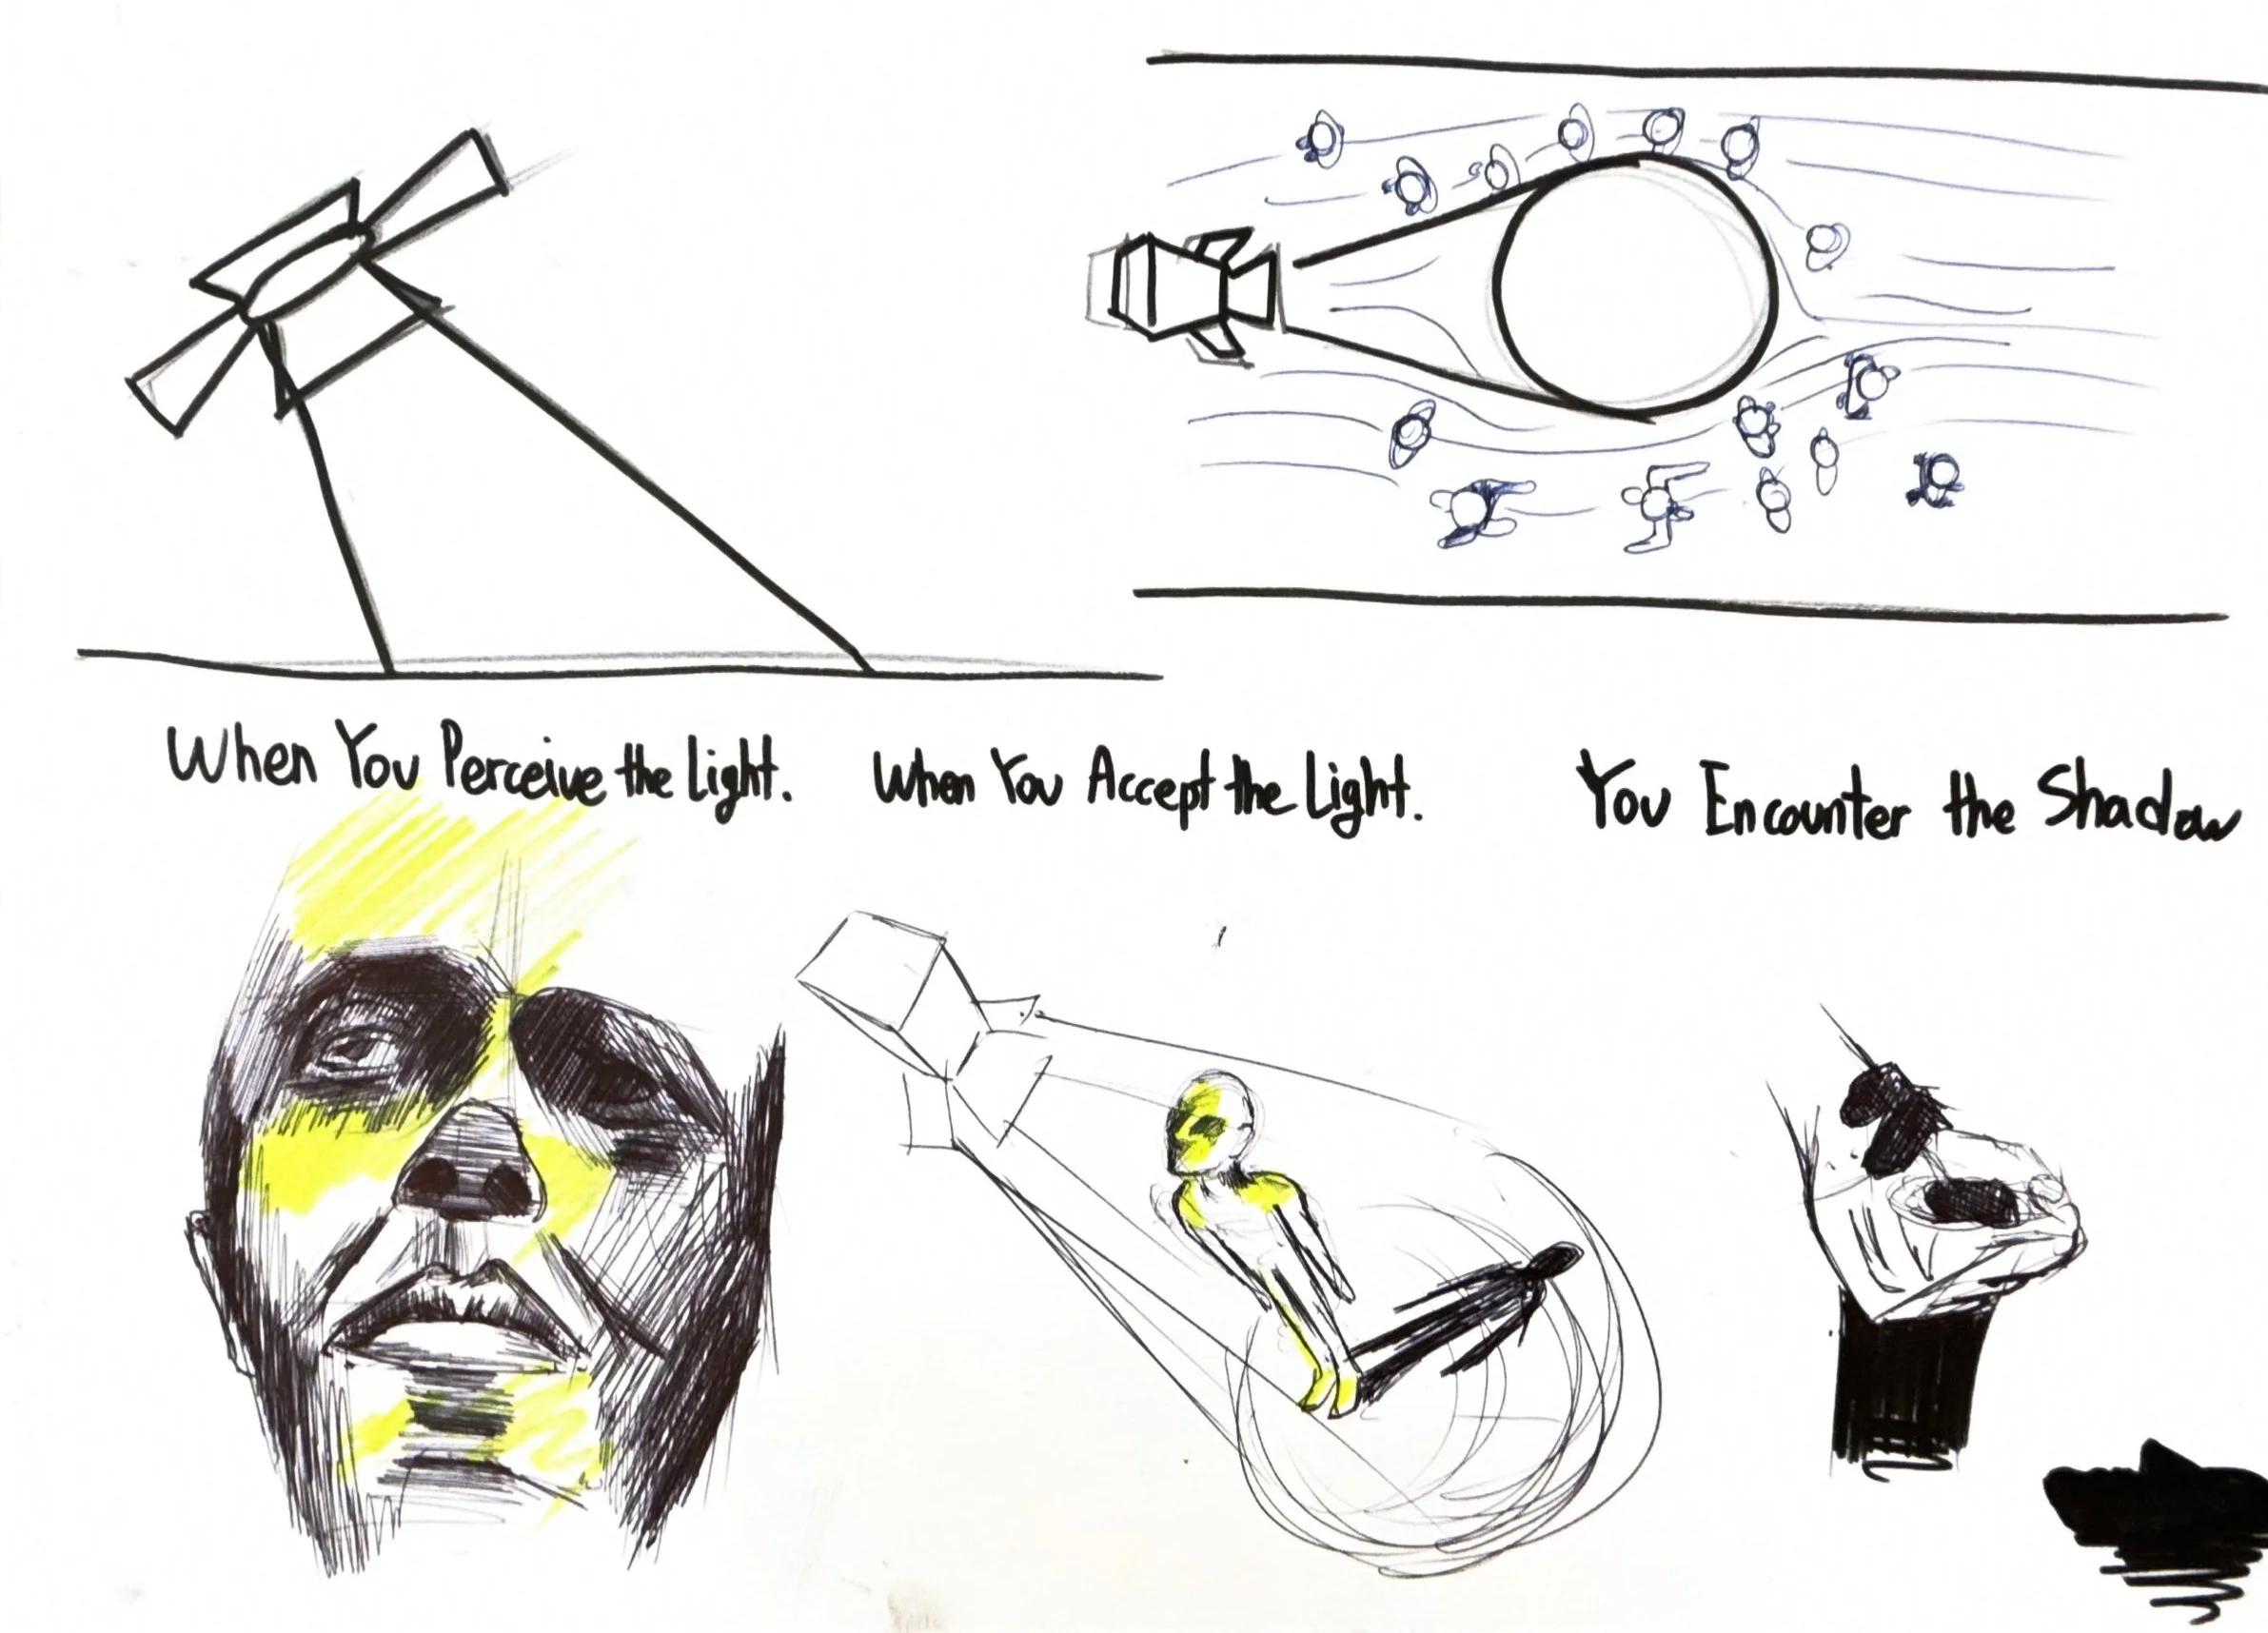 When You Perceive the Light.
When You Accept the Light.
You Encounter the Shadow